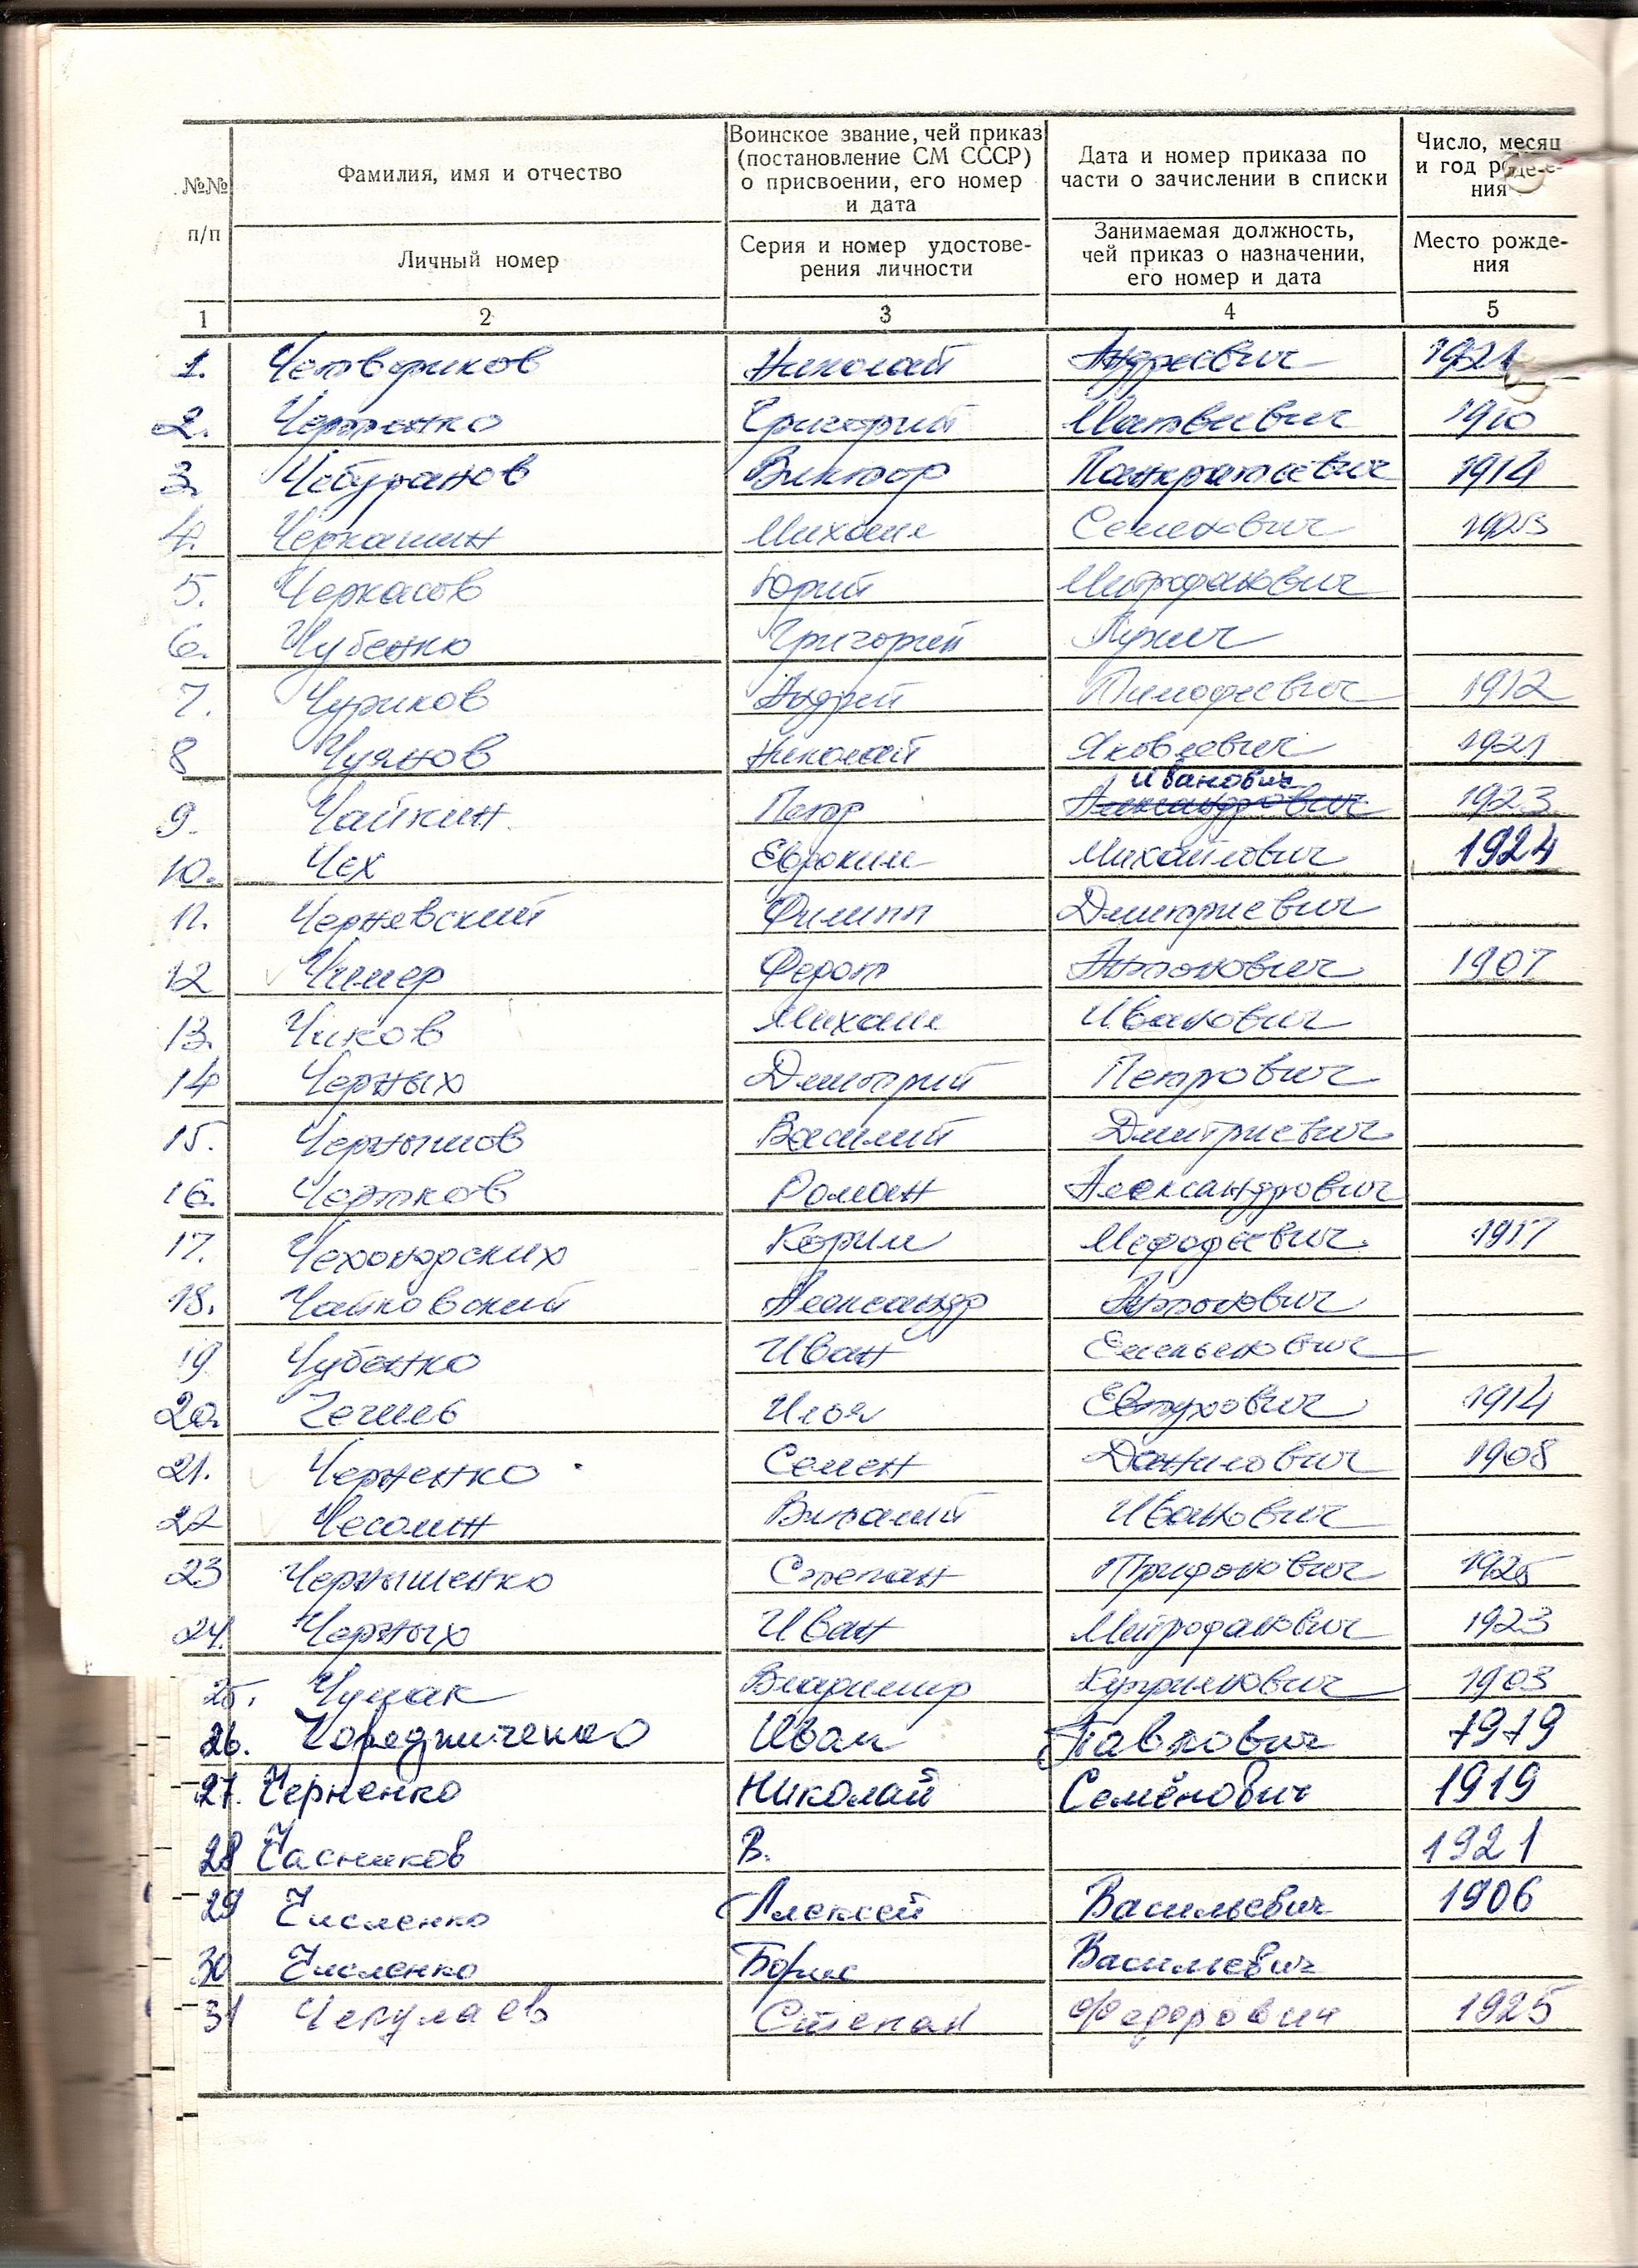 №№ п/п
Фамилия, имя и отчество
Личный номер
Воинское звание, чей приказ
(постановление СМ СССР)
о присвоении, его номер
и дата
Серия и номер удостове-
рения личности
Дата и номер приказа по
части о зачислении в списки
Занимаемая должность,
чей приказ о назначении,
его номер и дата
Число, месяц
и год рожде-
ния
Место рожде-
ния
1 2 3 4 5
1. Четвериков Николай Андреевич 1921
2. Григорий Матвеевич 1910
3. Чебуранов Виктор Панкратьевич 1914
4. Черкашин Михаил Семенович 1923
5. Черкасов Юрий Митрофанович
6. Чубенко Григорий
7. Чуриков Андрей Тимофеевич 1912
8 Чуянов Николай Яковлевич 1921
Иванович
9. Чайкин Петр Александрович 1923
10. Чех Евдоким Михайлович 1924
11. Чернявский Филипп Дмитриевич
12 Федот Антонович 1907
13. Чиков Михаил Иванович
14 Черных Дмитрий Петрович
15. Чернышов Василий Дмитриевич
16. Чертков Роман Александрович
17. Мефодеевич 1917
18. Чайковский Александр Антонович
19 Чубенко Иван Емельянович
20. Чечель Илья 1914
21. Черненко Семен Данилович 1908
22 Иванович
23 Чернышенко Степан Трифонович 1925
24. Черных Иван Митрофанович 1923
25. Чумак Владимир 1903
26. Чередниченко Иван Павлович 1919
27. Черненко Николай Семёнович 1919
28 Часников В. 1921
29 Численко Алексей Васильевич 1906
30 Численко Борис Васильевич
31 Чекулаев Степан Федорович 1925